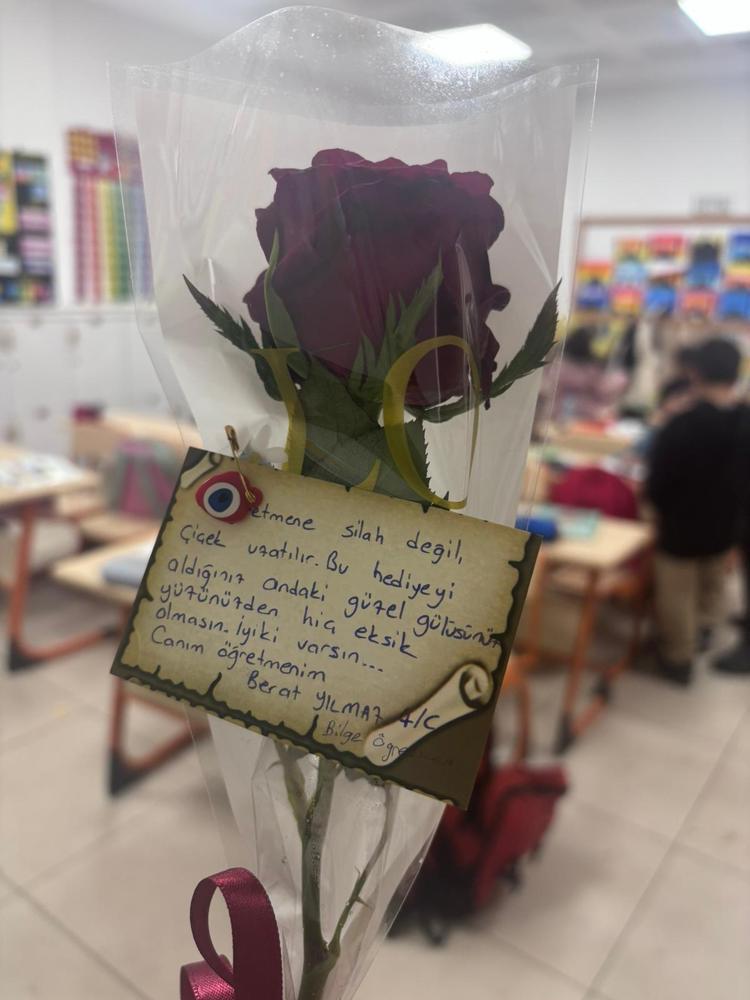 LO
etmene silah değil,
Çiçek uzatılır. Bu hediyeyi
aldığınız andaki güzel gülüşünüz
yüzünüzden hiç eksik
olmasın. İyiki varsın...
Canım öğretmenim
Berat YILMAZ 4/C
Bilge